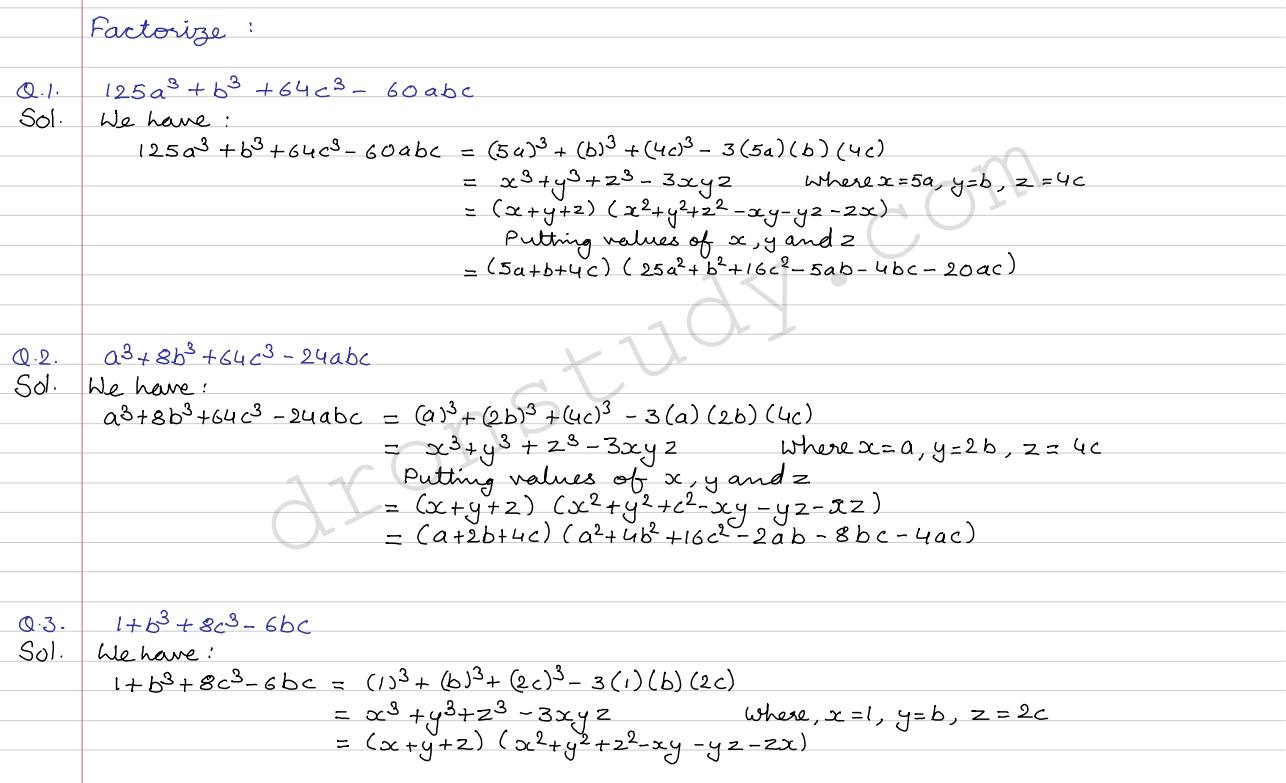 Factorize :
Q.1. 125a³ + b³ + 64c³ - 60abc
Sol. We have :
125a³ + b³ + 64c³ - 60abc = (5a)³ + (b)³ + (4c)³ - 3(5a)(b)(4c)
= x³ + y³ + z³ - 3xyz where x=5a, y=b, z=4c
= (x+y+z) (x²+y²+z²-xy-yz-zx)
Putting values of x, y and z
= (5a+b+4c) (25a²+b²+16c²-5ab-4bc-20ac)
Q.2. a³+8b³+64c³-24abc
Sol. We have :
a³+8b³+64c³-24abc = (a)³+(2b)³+(4c)³ - 3(a)(2b)(4c)
= x³+y³+z³-3xyz where x=a, y=2b, z=4c
Putting values of x, y and z
= (x+y+z) (x²+y²+c²-xy-yz-xz)
= (a+2b+4c) (a²+4b²+16c²-2ab-8bc-4ac)
Q.3. 1+b³+8c³-6bc
Sol. We have :
1+b³+8c³-6bc = (1)³+(b)³+(2c)³-3(1)(b)(2c)
= x³+y³+z³-3xyz where, x=1, y=b, z=2c
= (x+y+z) (x²+y²+z²-xy-yz-zx)
dronstudy.com